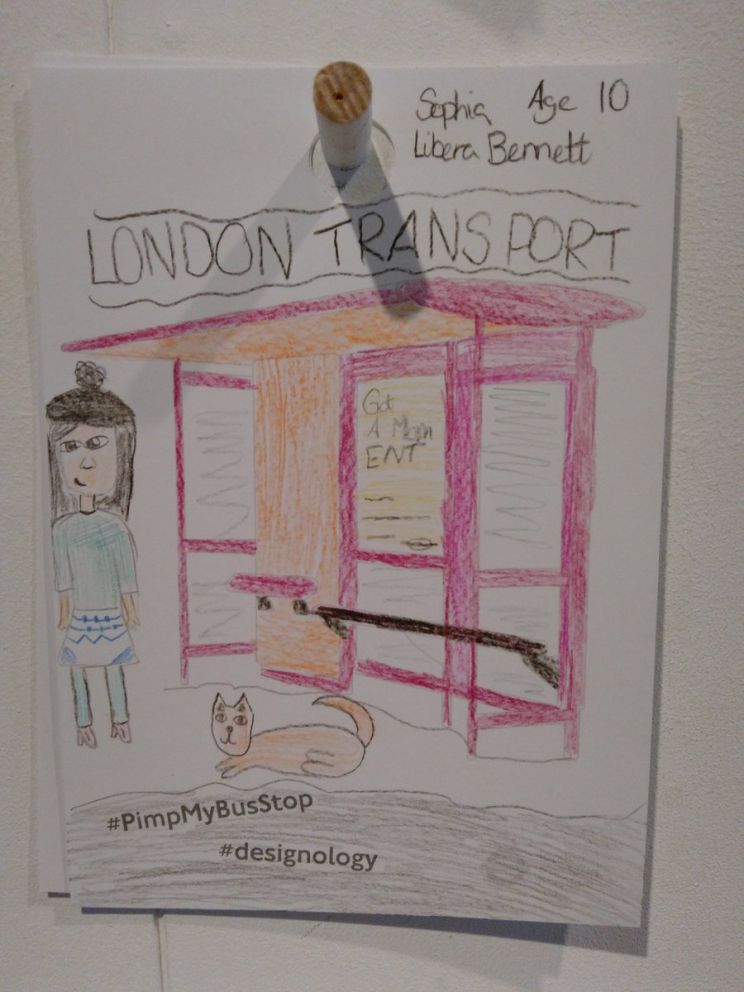 Sophia Age 10
Libera Bennett
LONDON TRANSPORT
Got
A Mom
ENT
#PimpMyBusStop
#designology